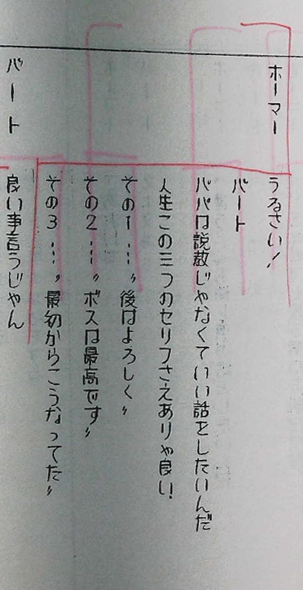 ホーマー うるさい!
バート
パパは説教じゃなくていい話をしたいんだ
人生この三つのセリフさえありゃ良い
その1…〝後はよろしく〟
その2…〝ボスは最高です〟
その3…〝最初からこうなってた〟
バート 良い事言うじゃん